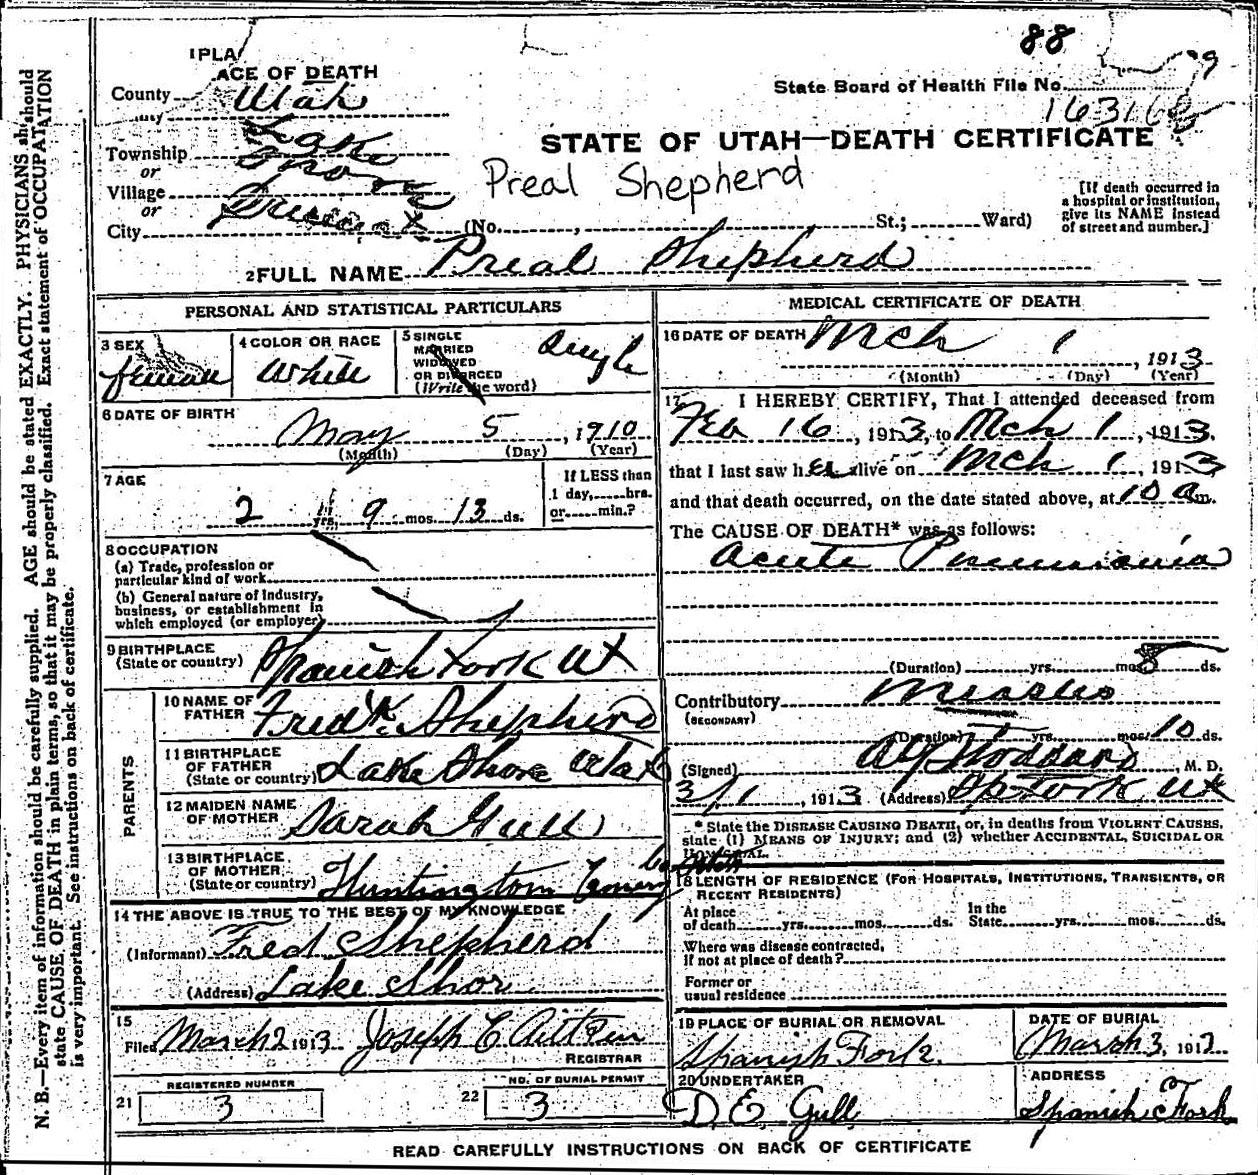 N. B.—Every item of information should be carefully supplied. AGE should be stated EXACTLY. PHYSICIANS should
state CAUSE OF DEATH in plain terms, so that it may be properly classified. Exact statement of OCCUPATION
is very important. See instructions on back of certificate.
88
1 PLA
ACE OF DEATH
County Utah
State Board of Health File No.
Township Lake
or
Village Shore
or
City Precinct (No. , St.; Ward)
STATE OF UTAH—DEATH CERTIFICATE
Preal Shepherd
[If death occurred in
a hospital or institution,
give its NAME instead
of street and number.]
2 FULL NAME Preal Shepherd
PERSONAL AND STATISTICAL PARTICULARS
3 SEX female
4 COLOR OR RACE White
5 SINGLE
MARRIED
WIDOWED
OR DIVORCED
(Write the word)
Single
6 DATE OF BIRTH
May 5, 1910
(Month) (Day) (Year)
7 AGE
2 yrs. 9 mos. 13 ds.
If LESS than
1 day, hrs.
or min.?
8 OCCUPATION
(a) Trade, profession or
particular kind of work
(b) General nature of industry,
business, or establishment in
which employed (or employer)
9 BIRTHPLACE
(State or country) Spanish Fork Ut
PARENTS
10 NAME OF
FATHER Fredk. Shepherd
11 BIRTHPLACE
OF FATHER
(State or country) Lake Shore Utah
12 MAIDEN NAME
OF MOTHER Sarah Gull
13 BIRTHPLACE
OF MOTHER
(State or country) Huntington Emery Co Utah
14 THE ABOVE IS TRUE TO THE BEST OF MY KNOWLEDGE
(Informant) Fred Shepherd
(Address) Lake Shor
15
Filed March 2 1913 Joseph C Aitken
REGISTRAR
REGISTERED NUMBER
21 3
NO. OF BURIAL PERMIT
22 3
MEDICAL CERTIFICATE OF DEATH
16 DATE OF DEATH Mch 1, 1913
(Month) (Day) (Year)
17 I HEREBY CERTIFY, That I attended deceased from
Feb 16, 1913, to Mch 1, 1913.
that I last saw her alive on Mch 1, 1913
and that death occurred, on the date stated above, at 10 a m.
The CAUSE OF DEATH* was as follows:
Acute Pneumonia
(Duration) yrs. mos. 8 ds.
Contributory Measles
(SECONDARY)
(Duration) yrs. mos. 10 ds.
(Signed) Stoddard, M. D.
3/1, 1913 (Address) Sp Fork Ut
* State the DISEASE CAUSING DEATH, or, in deaths from VIOLENT CAUSES,
state (1) MEANS OF INJURY; and (2) whether ACCIDENTAL, SUICIDAL OR
HOMICIDAL.
18 LENGTH OF RESIDENCE (FOR HOSPITALS, INSTITUTIONS, TRANSIENTS, OR
RECENT RESIDENTS)
At place
of death yrs. mos. ds.
In the
State yrs. mos. ds.
Where was disease contracted,
if not at place of death?
Former or
usual residence
19 PLACE OF BURIAL OR REMOVAL
Spanish Fork.
DATE OF BURIAL
March 3, 1913
20 UNDERTAKER
D. E. Gull
ADDRESS
Spanish Fork
READ CAREFULLY INSTRUCTIONS ON BACK OF CERTIFICATE